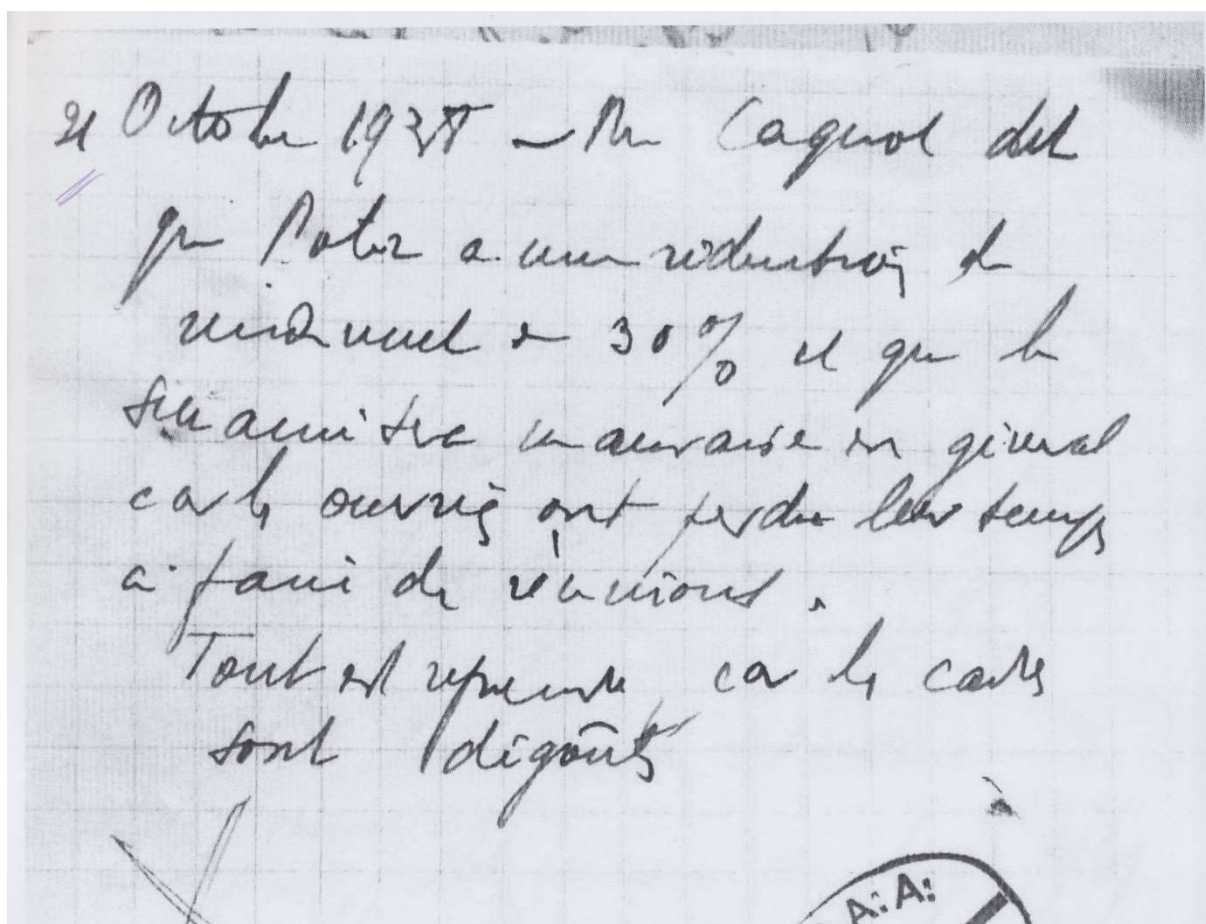 21 Octobre 193 – Mr Cagnol dit
que Potez a une réduction de
rendement de 30% et que la
sera mauvaise en général
car les ouvriers ont perdu leur temps
à faire des réunions.
Tout est car les cadres
sont dégoûtés
A: A: